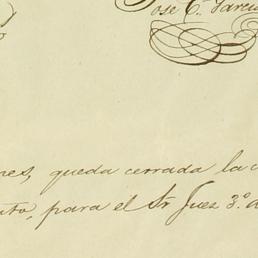 Jose C. Garcia
nes, queda cerrada la c
uto, para el Sr Juez 3.º d